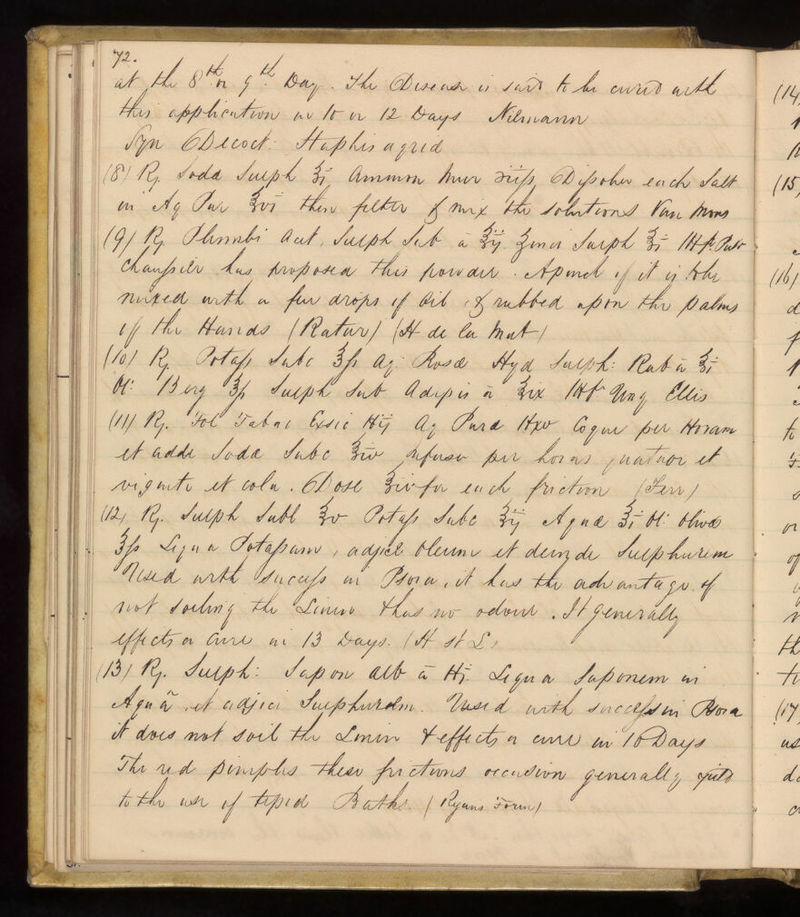 72.
at the 8th or 9th Day. The Disease is said to be cured with
this application in 10 or 12 Days Niemann
Syn Decoct: Staphisagriæ
(8) ℞. Soda Sulph ʒi Ammon Mur ʒiiſs Diſsolve each Salt
in Aq Pur ℥vi then filter & mix the solutions Van Mons
(9) ℞ Plumbi Acet, Sulph Sub a ʒij Zinci Sulph ʒi M ft Pulv
Chauſsier has proposed this powder. A pinch of it is to be
mixed with a few drops of Oil, & rubbed upon the palms
of the Hands (Ratier) (H de la Mat)
(10) ℞ Potaſs Subc ℥ſs Aq Rosæ Hyd Sulph: Rub a ʒi
Ol: Berg ʒſs Sulph Sub Adipis a ℥ix Mft Ung Ellis
(11) ℞. Fol Tabac Exsic ij Aq Pura xv Coque per Horam
et adde Soda Subc ℥iv infuso per horas quatuor et
viginti et cola. Dose ℥iv for each friction (Ferr)
(12) ℞. Sulph Subl ℥v Potaſs Subc ℥ij Aquæ ℥i Ol: Olivæ
℥ſs Liqua Potaſsam, adjice Oleum et deinde Sulphurem
Used with succeſs in Psora, it has the advantage of
not soiling the Linen & has no odour. It generally
effects a cure in 13 Days. (H St L)
(13) ℞. Sulph: Sapon Alb a i Liqua Saponem in
Aquâ, et adjici Sulphurem. Used with succeſs in Psora
it does not soil the Linen & effects a cure in 10 Days
The red pimples these frictions occasion generally yield
to the use of tepid Baths. (Ryans Form)
(14)
(15)
(16)
to
of
th
(17)
us